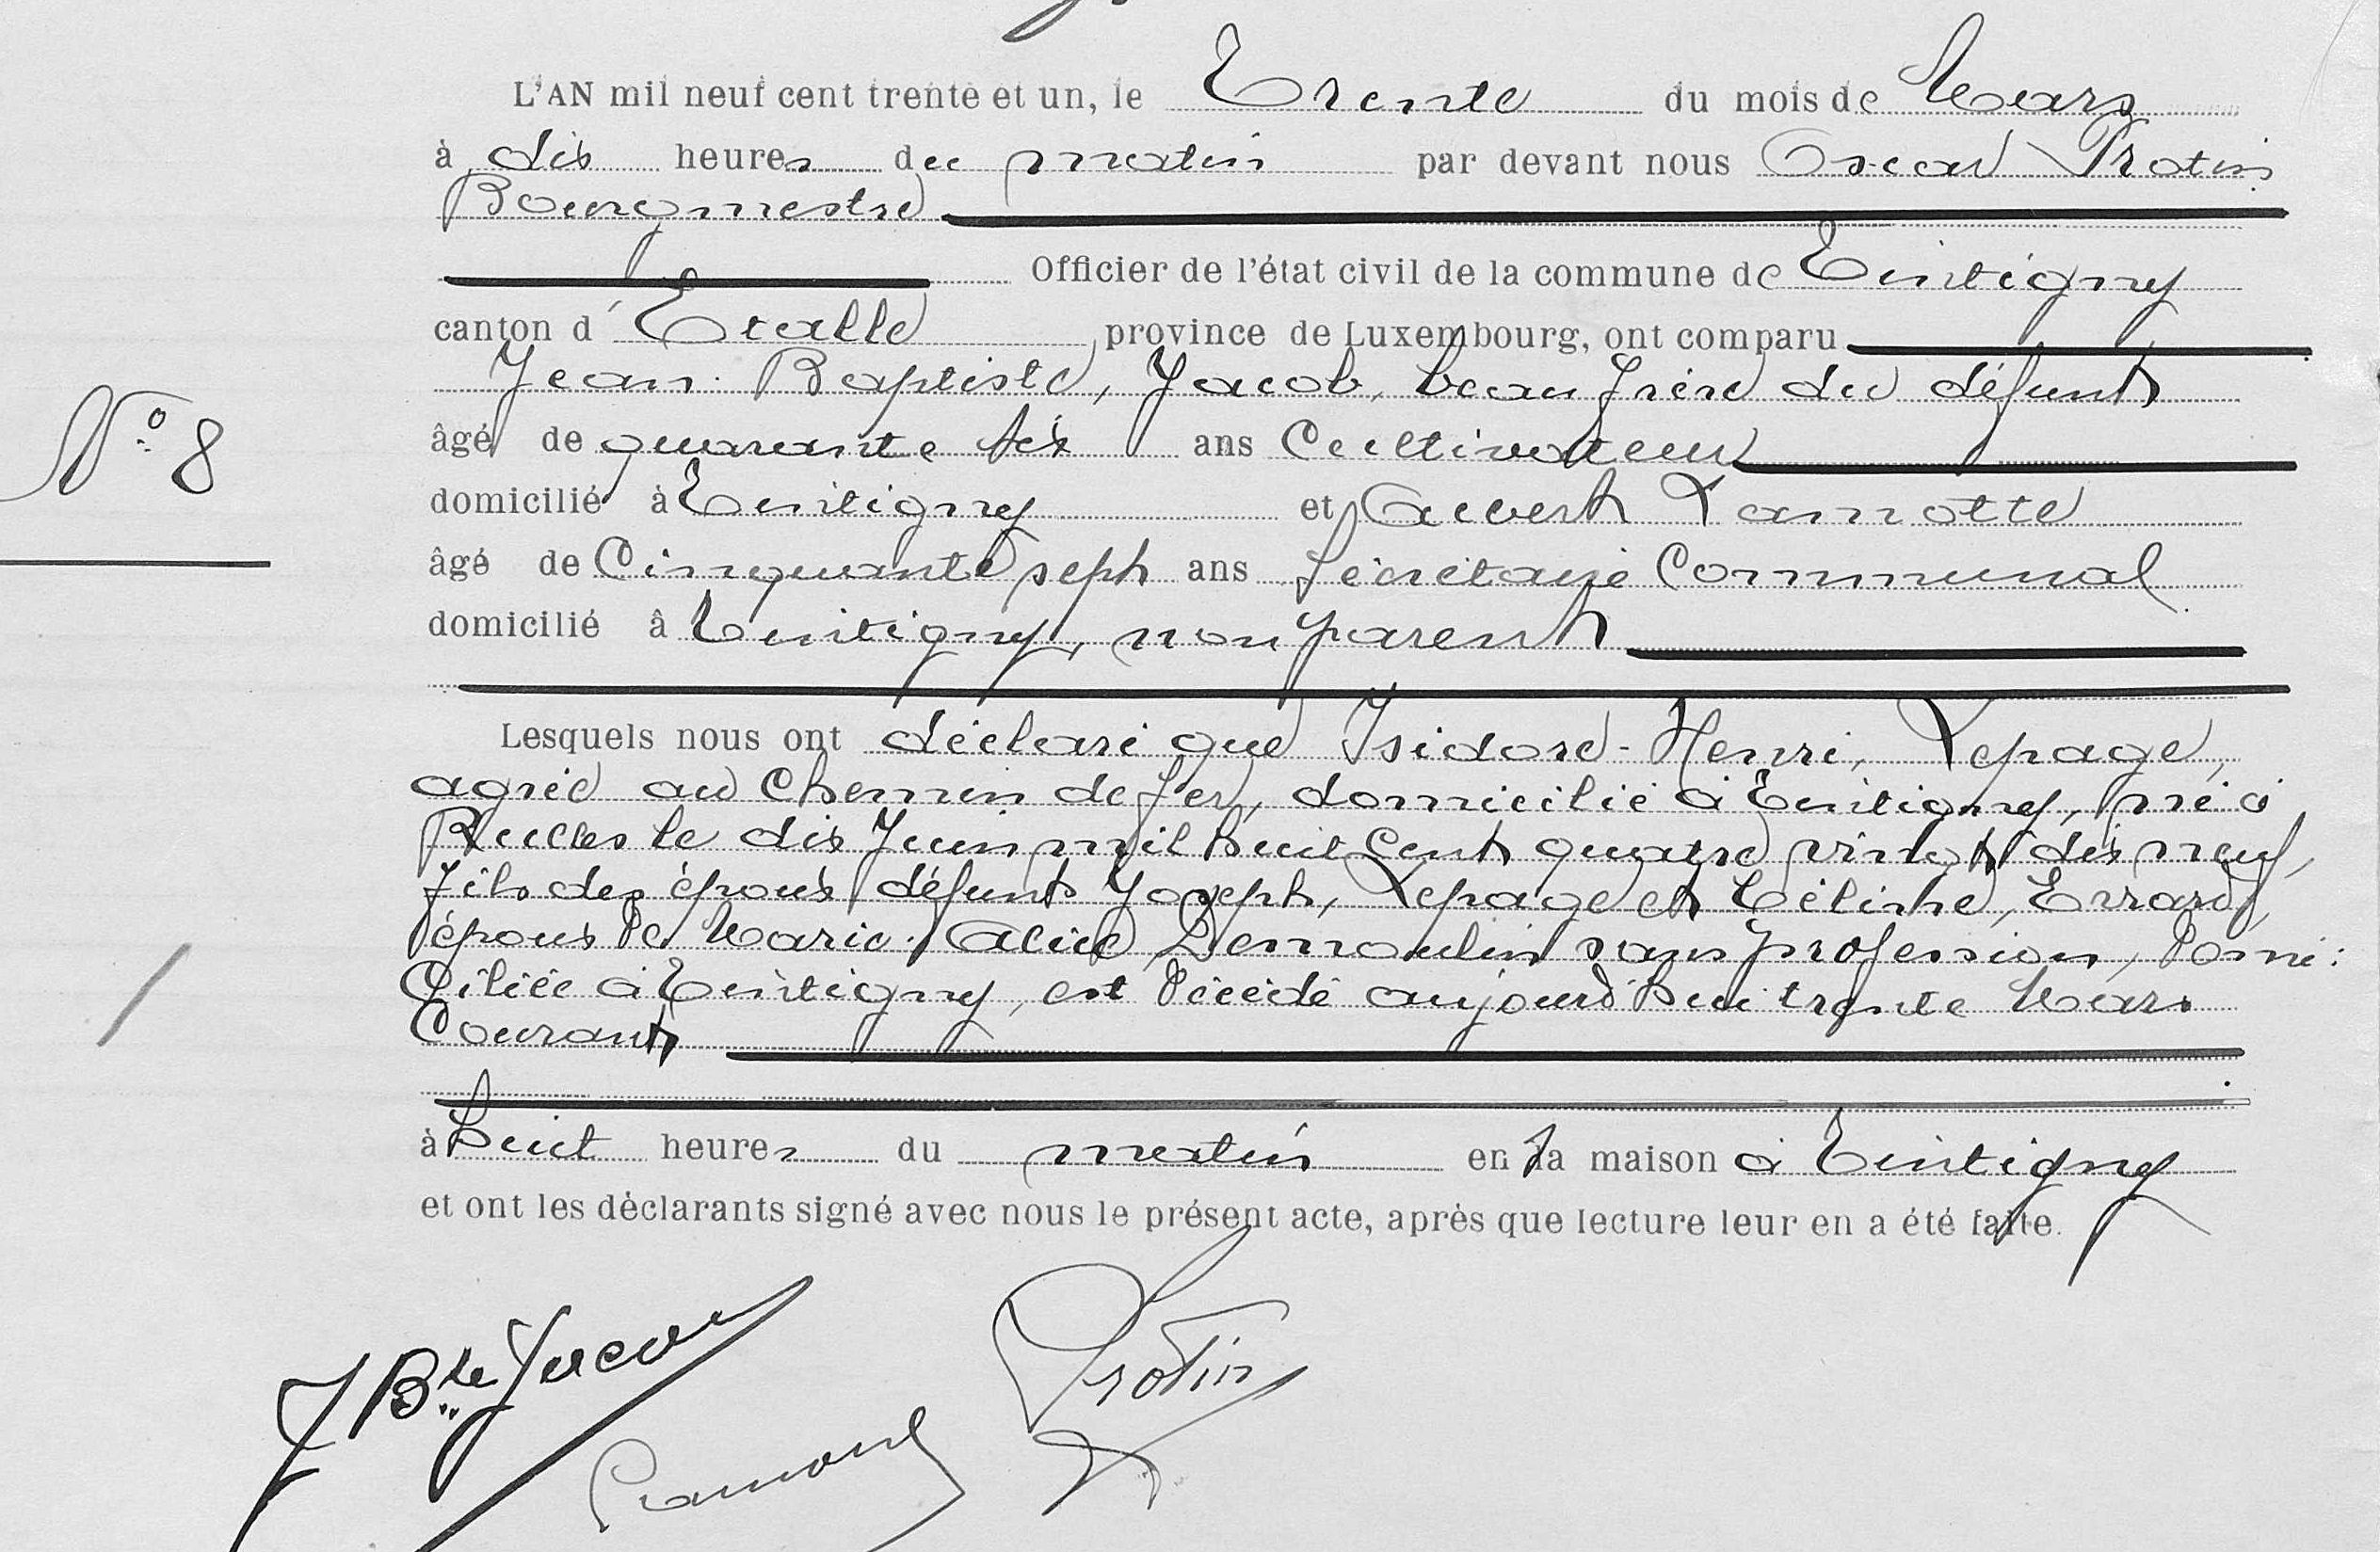 L'AN mil neuf cent trente et un, le Trente du mois de Mars
à dix heures du matin par devant nous Oscar Protin
Bourgmestre
Officier de l'état civil de la commune de Tintigny
canton d'Etalle province de Luxembourg, ont comparu
Jean-Baptiste, Jacob, beau frère du défunt
N° 8
âgé de quarante six ans Cultivateur
domicilié à Tintigny et Albert Lamotte
âgé de Cinquante sept ans Sécrétaire Communal
domicilié à Tintigny, non parent
Lesquels nous ont déclaré que Isidore-Henri, Lepage,
agréé au Chemin de fer, domicilié à Tintigny, né à
Rulles le dix Juin mil huit Cent quatre vingt dix neuf,
fils des époux défunts Joseph, Lepage et Céline, Errard,
époux de Marie-Alice, Demoulin sans profession, domi:
Ciliée à Tintigny, est décédé aujourd'hui trente Mars
Courant
à huit heures du matin en sa maison à Tintigny
et ont les déclarants signé avec nous le présent acte, après que lecture leur en a été faite.
J Bte Jacob
Protin